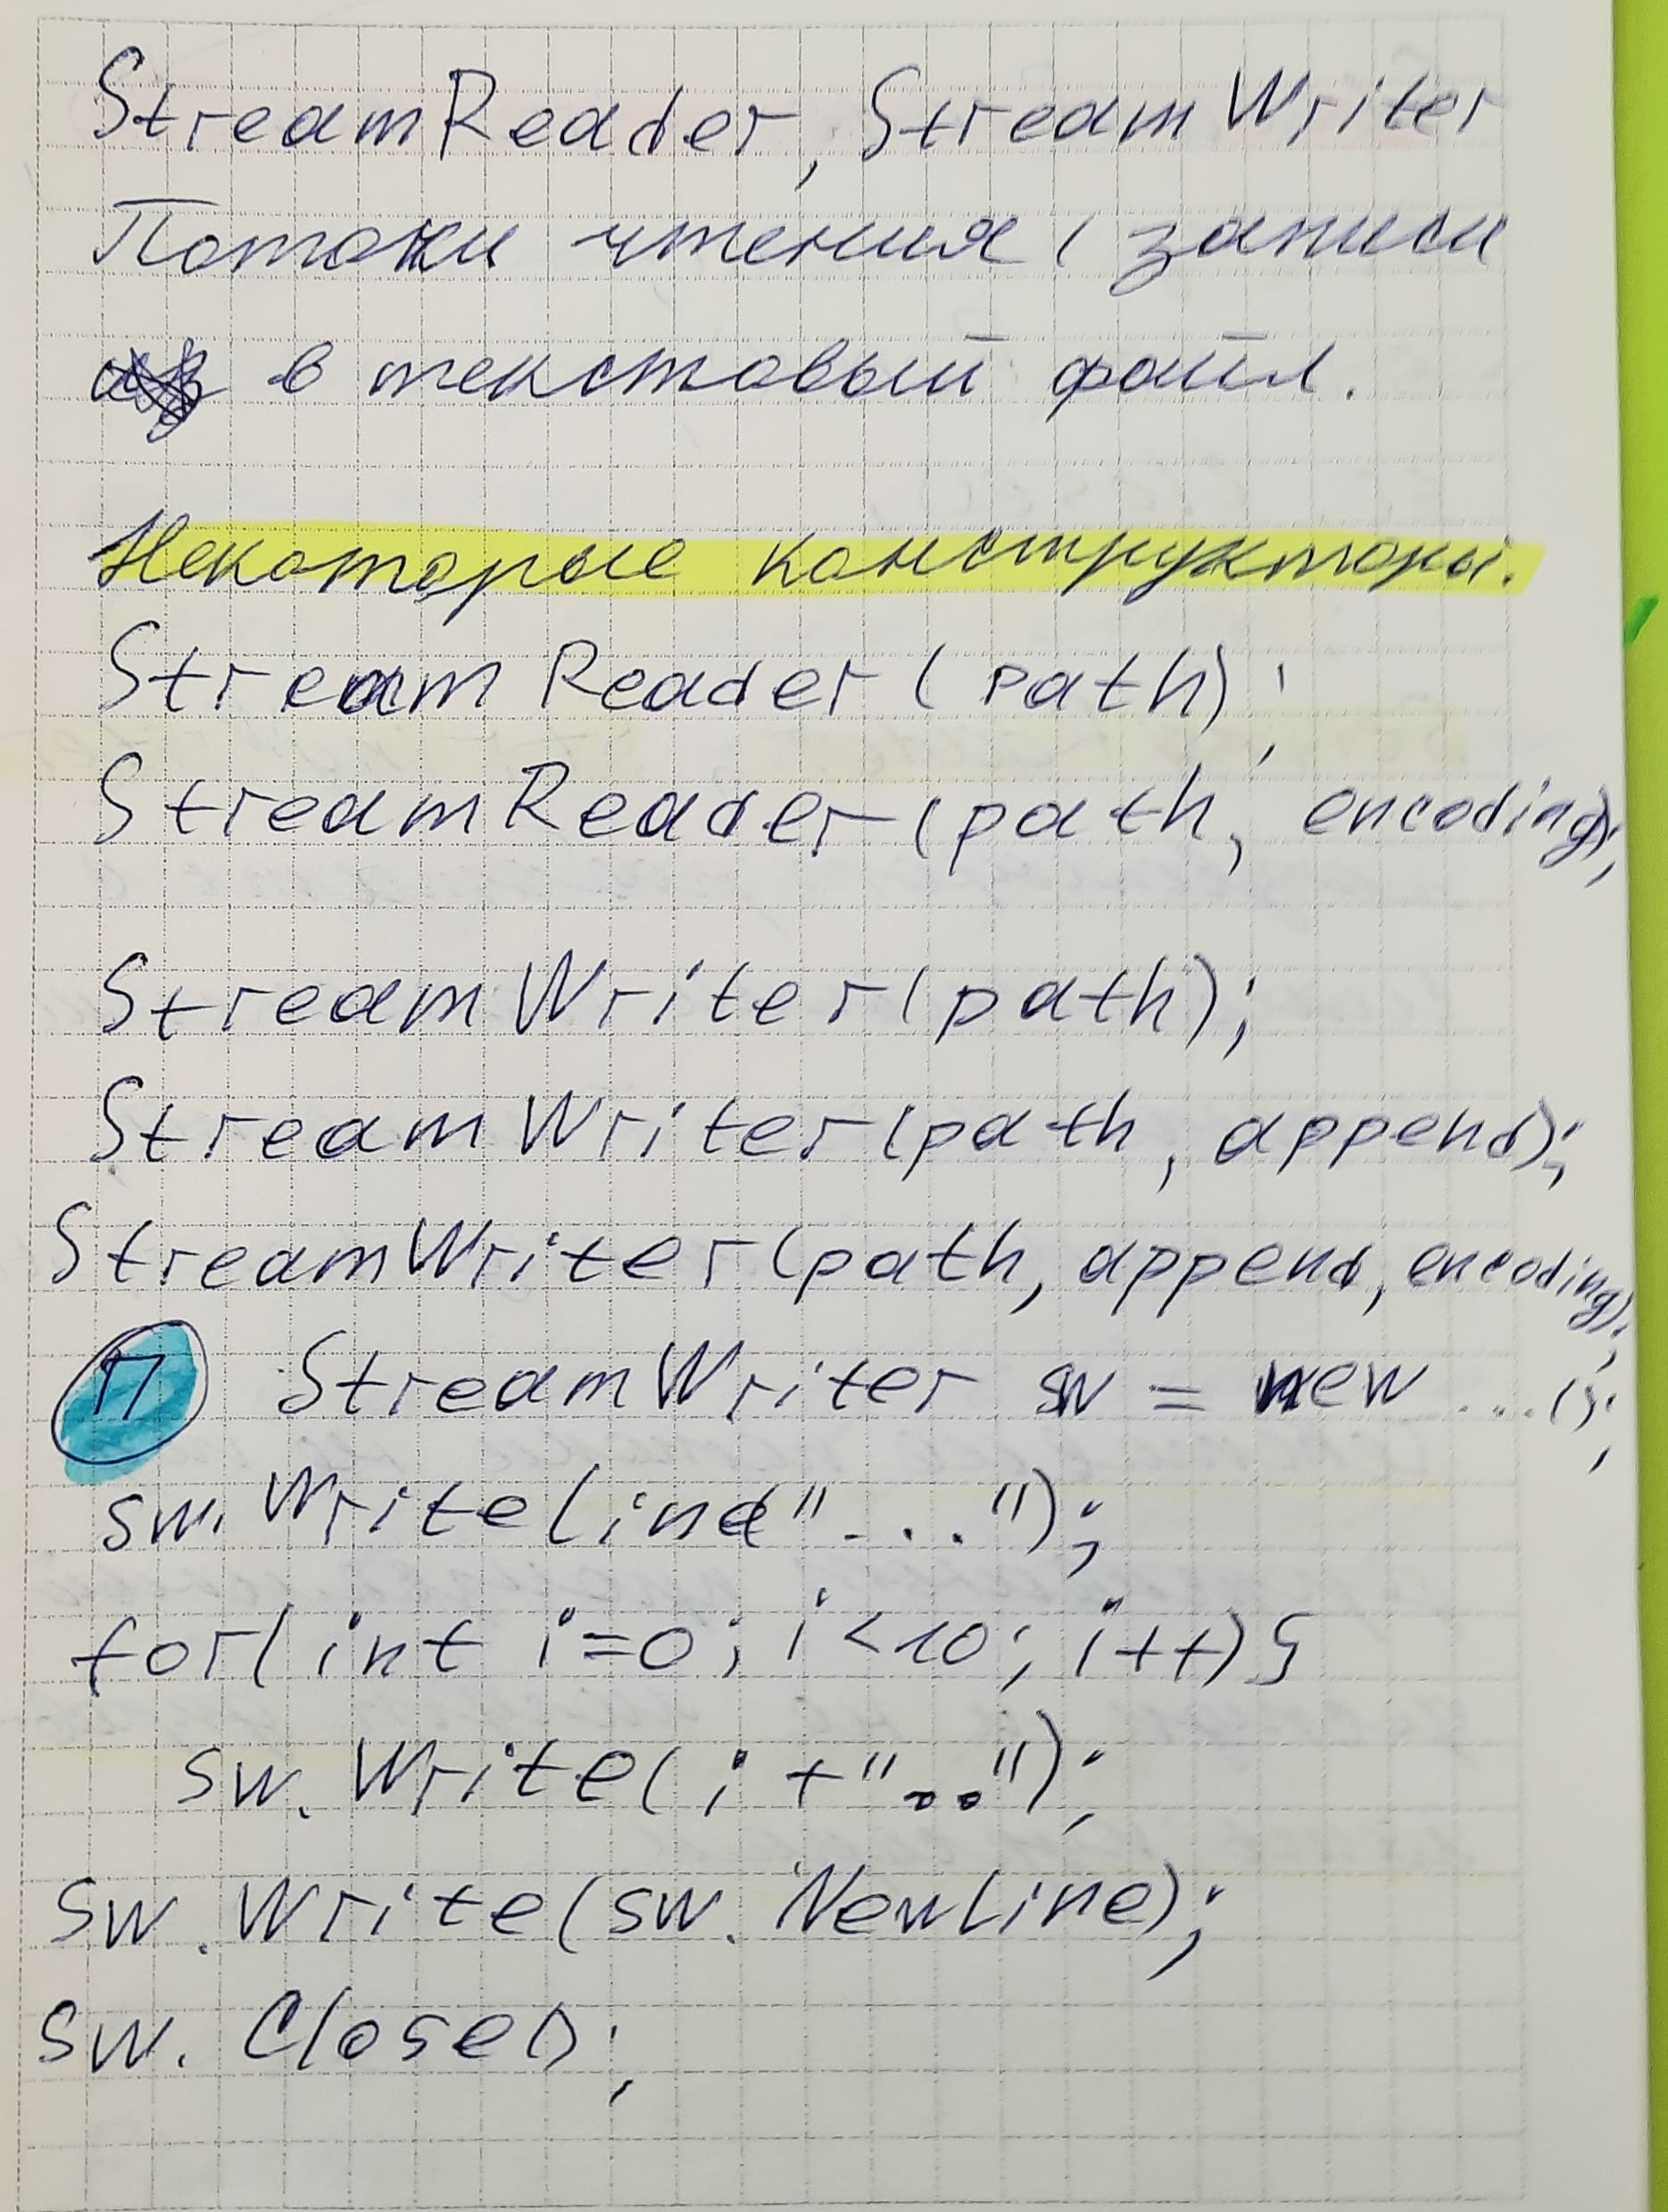 StreamReader, StreamWriter
Потоки чтения / записи
в текстовый файл.
Некоторые конструкторы.
StreamReader(path);
StreamReader(path, encoding);
StreamWriter(path);
StreamWriter(path, append);
StreamWriter(path, append, encoding);
П StreamWriter sw = new ...();
sw. Write(ine("...");
for(int i=0; i<10; i++){
sw. Write(i+"..");
sw. Write(sw. NewLine);
sw. Close();